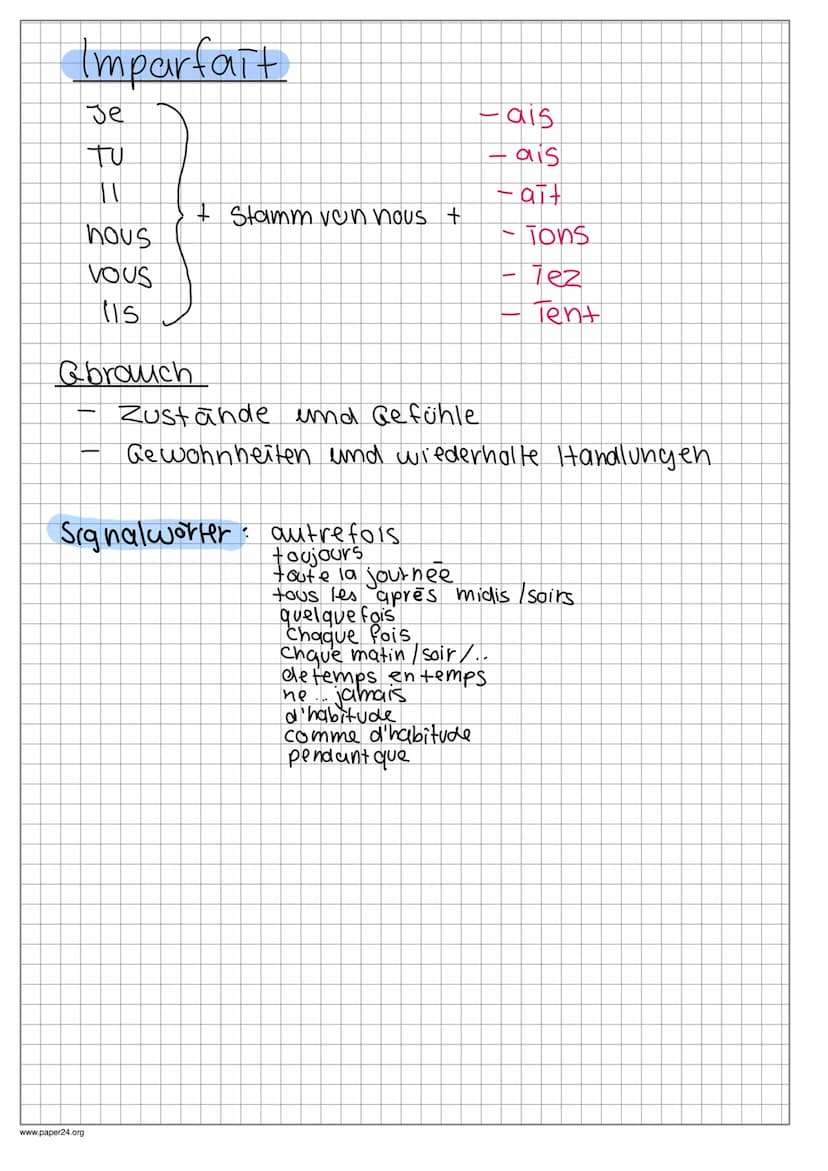 Imparfait
Je
- ais
Tu
- ais
Il
- ait
+ Stamm von nous +
nous
- ions
vous
- iez
Ils
- ient
Gbrauch
- Zustände und Gefühle
- Gewohnheiten und wiederholte Handlungen
Signalwörter: autrefois
toujours
toute la journée
tous les après midis / soirs
quelque fois
chaque fois
chque matin / soir / ..
de temps en temps
ne .. jamais
d'habitude
comme d'habitude
pendant que
www.paper24.org